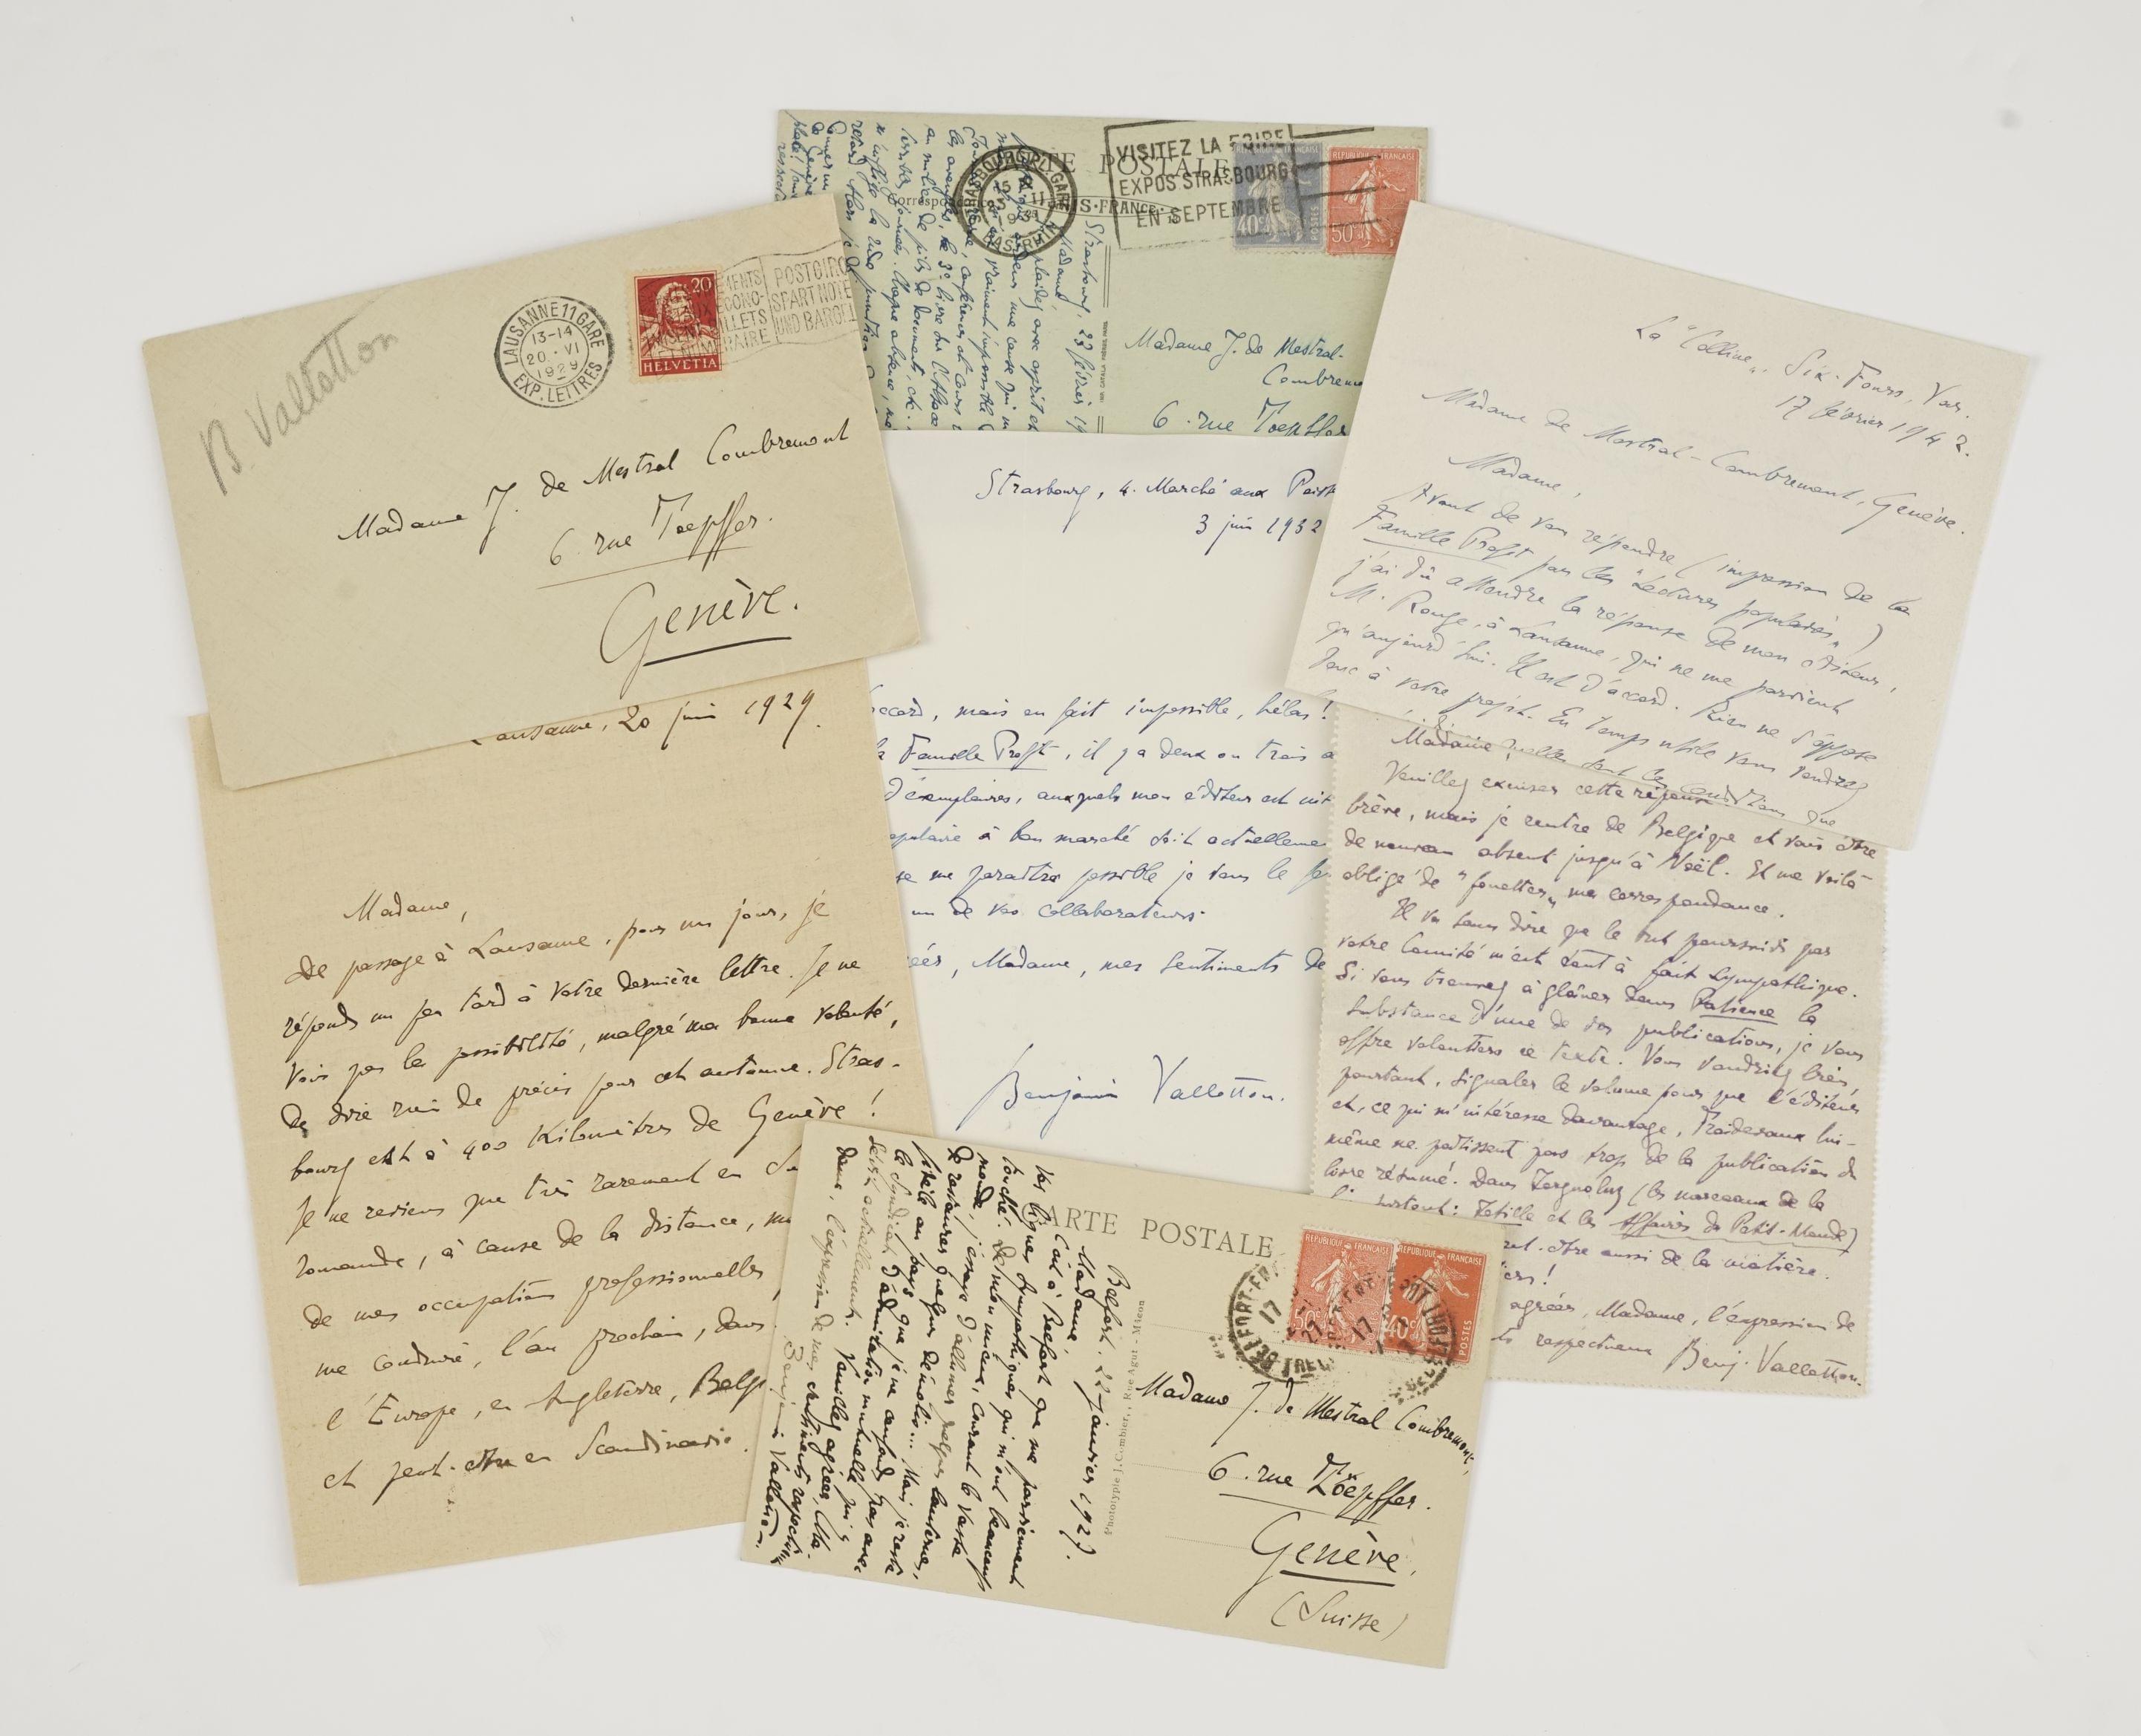 B. Vallotton
LAUSANNE 11 GARE
13-14
20.VI
1929
EXP. LETTRES
20
HELVETIA
POSTGIRO
SPART NOTE
UND BARGEL
Madame J. de Mestral Combremont
6 rue Toepffer.
Genève.
CARTE POSTALE
VISITEZ LA FOIRE
EXPOS STRASBOURG
EN SEPTEMBRE
REPUBLIQUE FRANCAISE
40c POSTES
REPUBLIQUE FRANCAISE
50c
Strasbourg, 23 février 19
Madame,
Madame J. de Mestral-
Combremo
6 rue Toepffer
La "Colline", Six-Fours, Var.
17 février 1942.
Madame de Mestral-Combremont, Genève.
Madame,
Avant de vous répondre (impression de la
Famille Profit par les "Lectures populaires")
j'ai dû attendre la réponse de mon éditeur,
M. Rouge, à Lausanne, qui ne me parvient
qu'aujourd'hui. Il est d'accord. Rien ne s'oppose
donc à votre projet. En temps utile vous voudrez
Strasbourg, 4. Marché aux Poiss
3 juin 1932
ccord, mais en fait impossible, hélas!
Famille Profit, il y a deux ou trois a
d'exemplaires, auxquels mon éditeur est
opulaire à bon marché soit actuelleme
se me paraîtra possible je vous le
un de vos collaborateurs.
éer, Madame, mes sentiments de
Benjamin Vallotton.
Lausanne, 20 juin 1929.
Madame,
De passage à Lausanne, pour un jour, je
réponds un peu tard à votre dernière lettre. Je ne
vois pas la possibilité, malgré ma bonne volonté,
de dire rien de précis pour cet automne. Stras-
bourg est à 400 kilomètres de Genève!
Je ne reviens que très rarement en Su
romande, à cause de la distance,
de mes occupations professionnelles,
me conduire, l'an prochain, dans
l'Europe, en Angleterre, Belgi
et peut-être en Scandinavie.
Madame
Veuillez excuser cette réponse
brève, mais je rentre de Belgique et vais être
de nouveau absent jusqu'à Noël. Et me voilà
obligé de "fouetter" ma correspondance.
Il va sans dire que le but poursuivi par
votre Comité m'est tout à fait sympathique.
Si vous trouvez à glâner dans Patience la
substance d'une de vos publications, je vous
offre volontiers ce texte. Vous voudriez bien,
pourtant, signaler le volume pour que l'éditeur
et, ce qui m'intéresse davantage, Froidevaux lui-
même ne pâtissent pas trop de la publication du
livre résumé. Dans Torgnoluz (les morceaux de la
surtout: Zozille et les Affaires de Petit-Monde)
peut-être aussi de la matière.
agréer, Madame, l'expression de
respectueux
Benj. Vallotton.
CARTE POSTALE
REPUBLIQUE FRANCAISE
50c
REPUBLIQUE FRANCAISE
40c POSTES
Belfort. 22 janvier 1927.
Madame,
C'est à Belfort que me parviennent
vos lignes sympathiques qui m'ont beaucoup
touché. De mon mieux, courant le vaste
monde, j'essaye d'allumer quelques lanternes,
de restaurer quelques démolis... Mais je reste
fidèle au pays que je ne confonds pas avec
le syndicat d'admiration mutuelle qui y
sévit actuellement. Veuillez agréer, Ma-
dame, l'expression de mes sentiments respectueux
Benjamin Vallotton.
Madame J. de Mestral Combremont,
6. rue Töepffer.
Genève,
(Suisse)